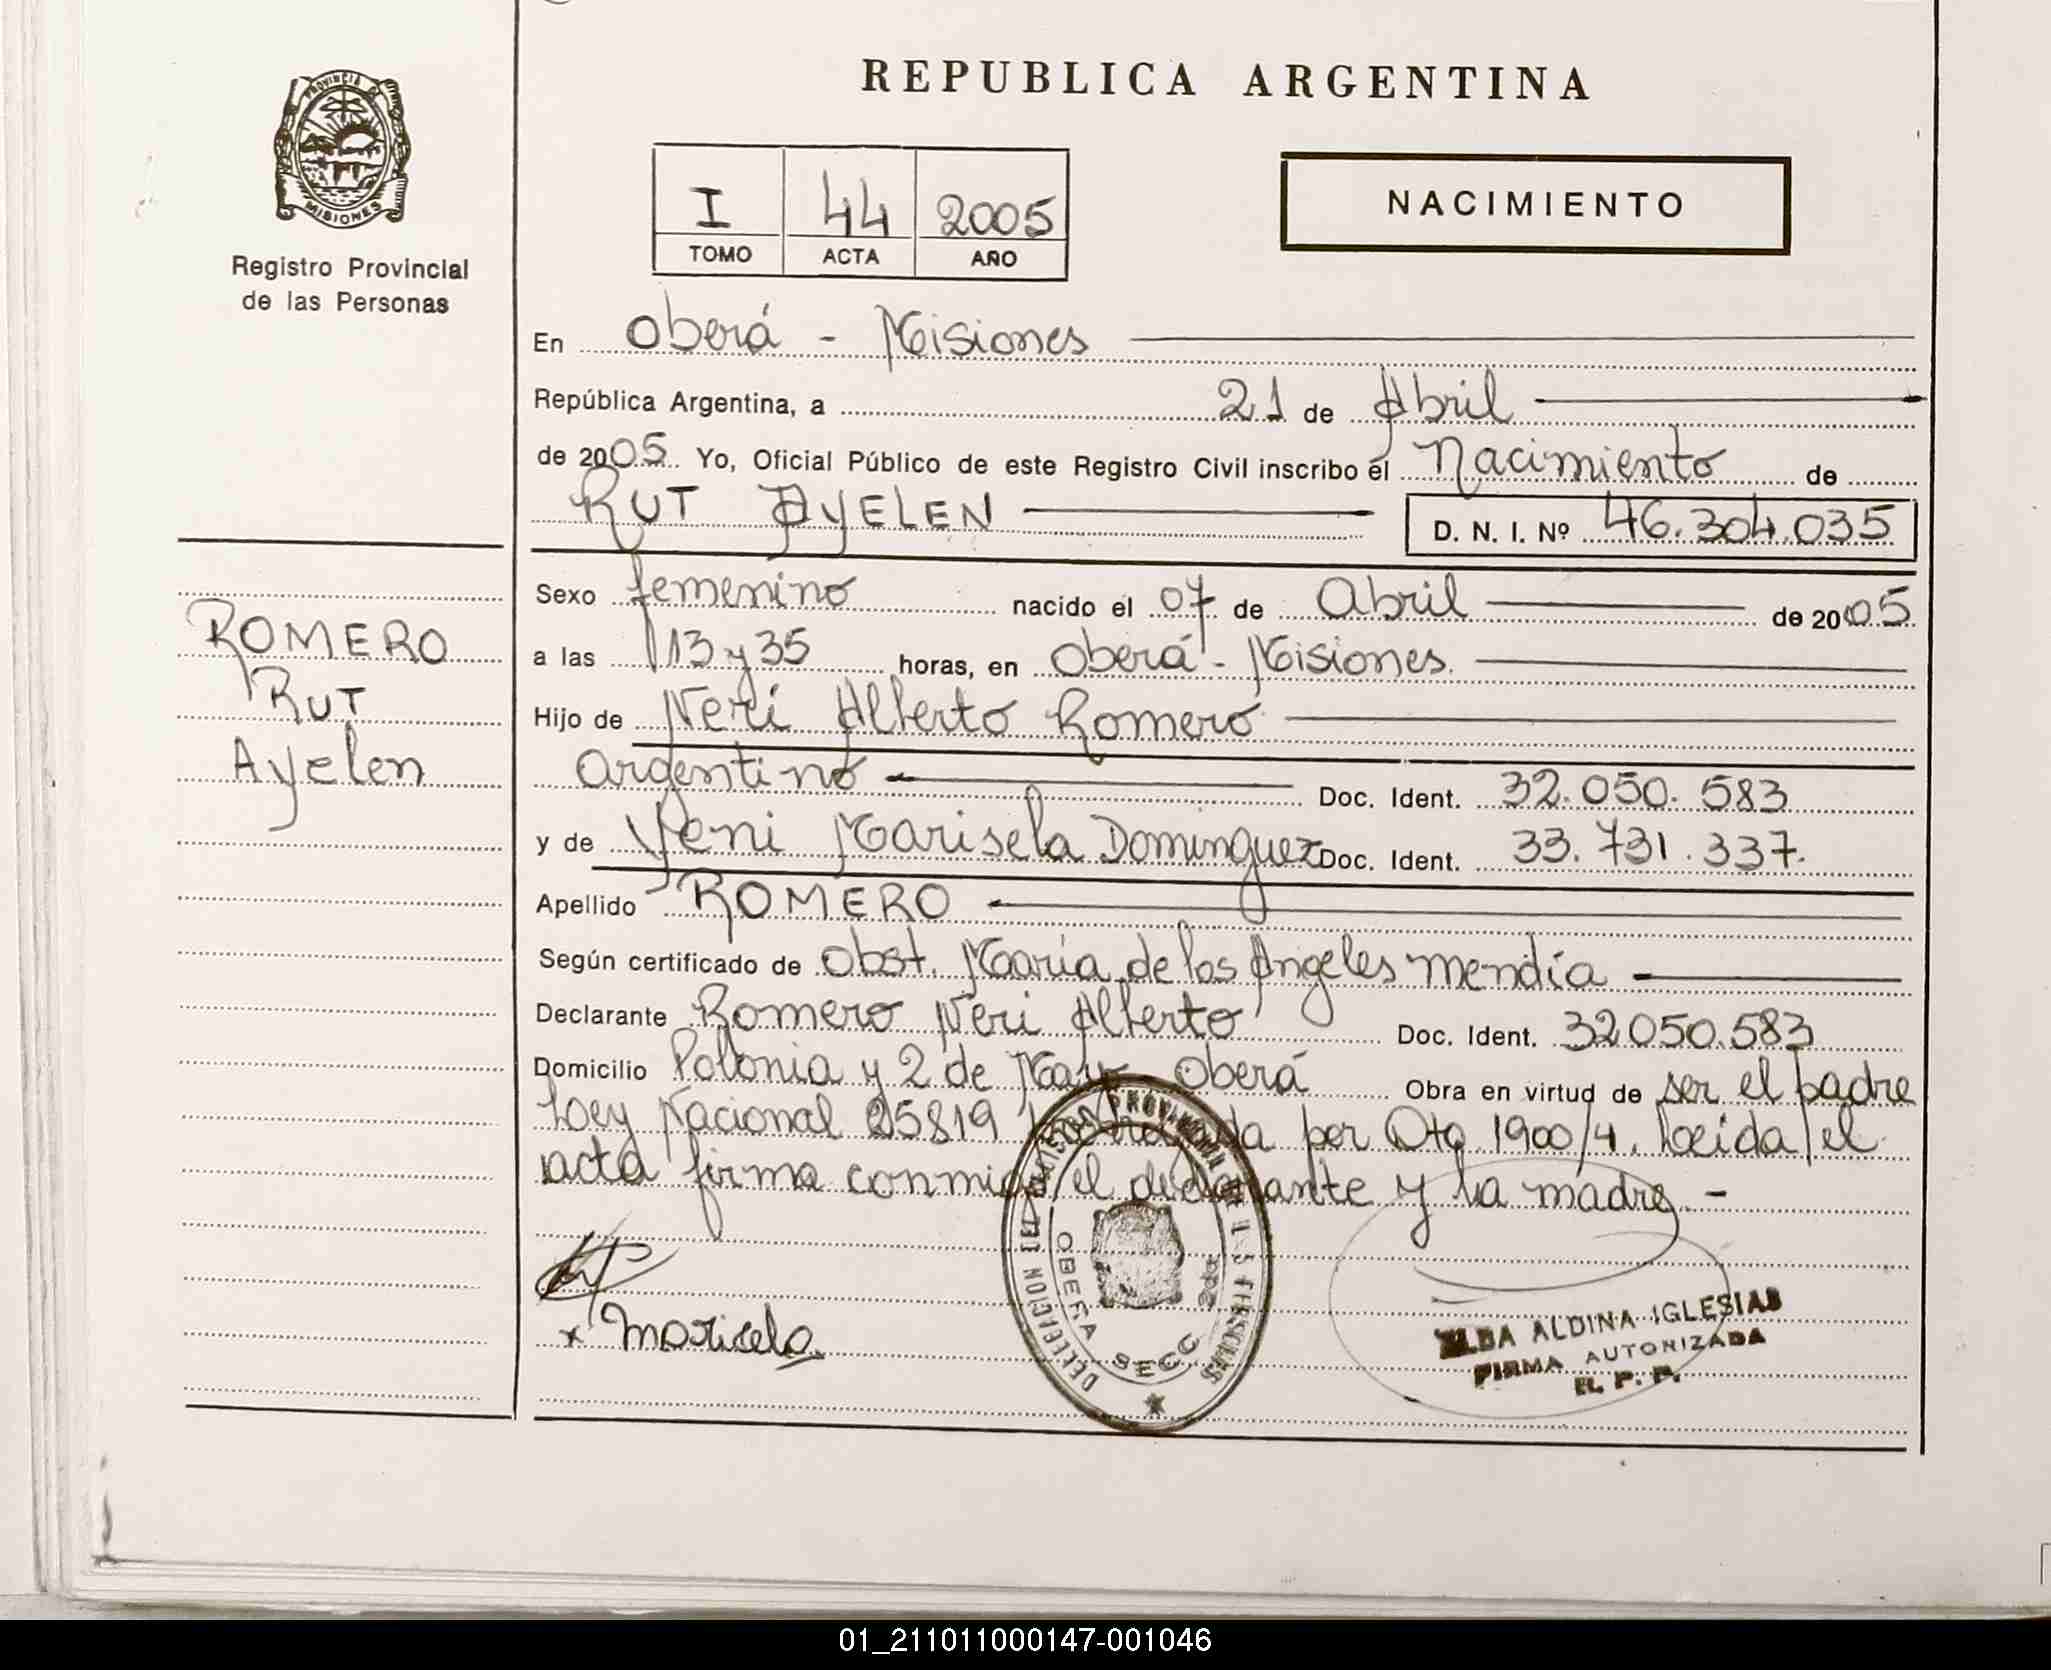 REPUBLICA ARGENTINA
PROVINCIA DE
MISIONES
Registro Provincial
de las Personas
I 44 2005
TOMO ACTA AÑO
NACIMIENTO
En Oberá - Misiones
República Argentina, a 21 de Abril
de 2005 Yo, Oficial Público de este Registro Civil inscribo el Nacimiento de
RUT AYELEN D. N. I. Nº 46.304.035
ROMERO
RUT
Ayelen
Sexo femenino nacido el 07 de Abril de 2005
a las 13 y 35 horas, en Oberá - Misiones.
Hijo de Neri Alberto Romero
Argentino Doc. Ident. 32.050.583
y de Yeni Marisela Dominguez Doc. Ident. 33.731.337.
Apellido ROMERO
Según certificado de Obst. María de los Angeles Mendía
Declarante Romero Neri Alberto Doc. Ident. 32050.583
Domicilio Polonia y 2 de Oberá Obra en virtud de ser el padre
Ley Nacional 25819 por Dto 1900/4. Leida el
acta firma conmigo el declarante y la madre. -
DELEGACION DEL REGISTRO PROVINCIAL DE LAS PERSONAS
OBERA SECC 2da
x Maricela
ELBA ALDINA IGLESIAS
FIRMA AUTORIZADA
R. P. P.
01_211011000147-001046